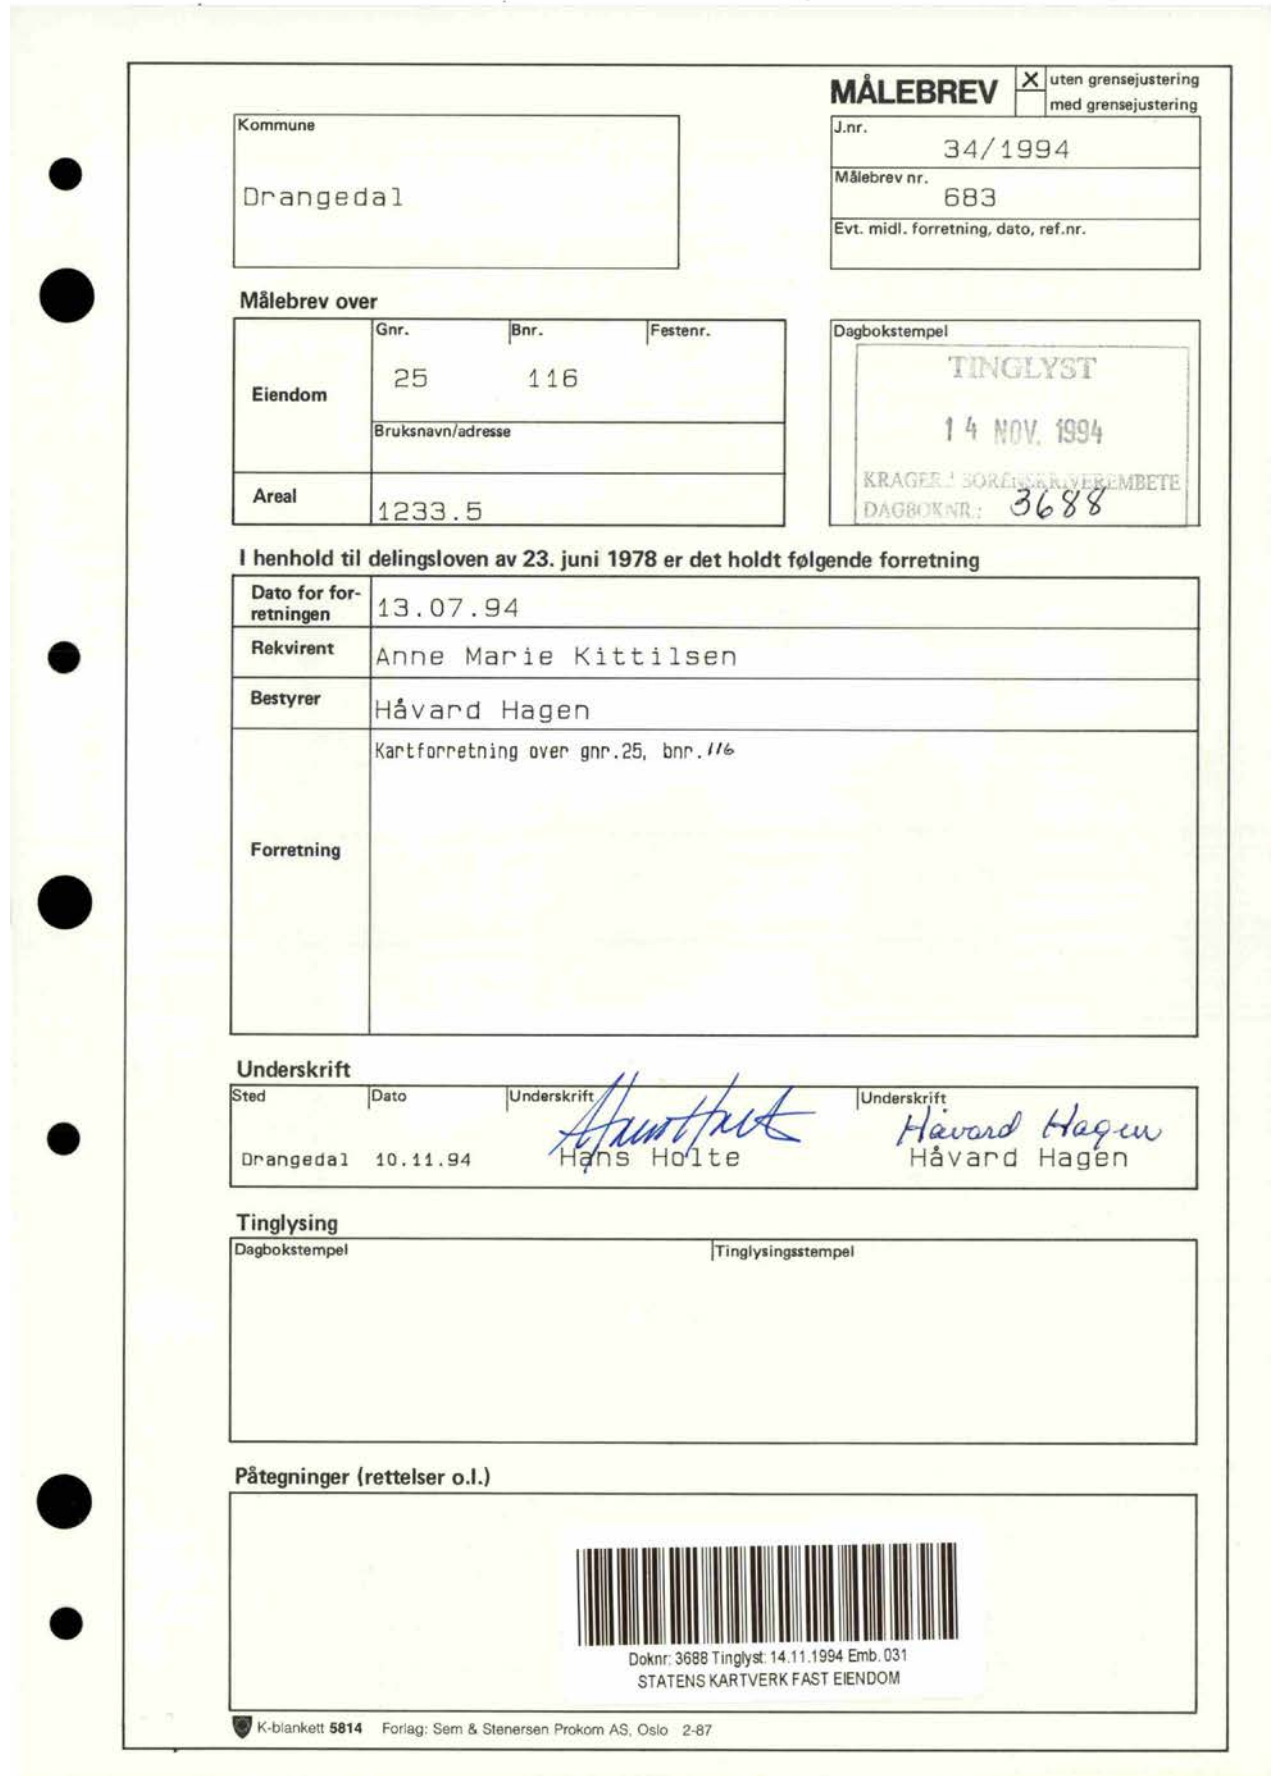 MÅLEBREV
X uten grensejustering
med grensejustering
Kommune
Drangedal
J.nr.
34/1994
Målebrev nr.
683
Evt. midl. forretning, dato, ref.nr.
Målebrev over
Gnr. Bnr. Festenr.
Eiendom
25 116
Bruksnavn/adresse
Areal
1233.5
Dagbokstempel
TINGLYST
14 NOV. 1994
SORENSKRIVEREMBETE
DAGBOKNR.: 3688
I henhold til delingsloven av 23. juni 1978 er det holdt følgende forretning
Dato for for-
retningen
13.07.94
Rekvirent
Anne Marie Kittilsen
Bestyrer
Håvard Hagen
Forretning
Kartforretning over gnr.25, bnr.116
Underskrift
Sted Dato Underskrift Underskrift
Håvard Hagen
Drangedal 10.11.94 Hans Holte Håvard Hagen
Tinglysing
Dagbokstempel Tinglysingsstempel
Påtegninger (rettelser o.l.)
Doknr: 3688 Tinglyst: 14.11.1994 Emb. 031
STATENS KARTVERK FAST EIENDOM
K-blankett 5814 Forlag: Sem & Stenersen Prokom AS, Oslo 2-87